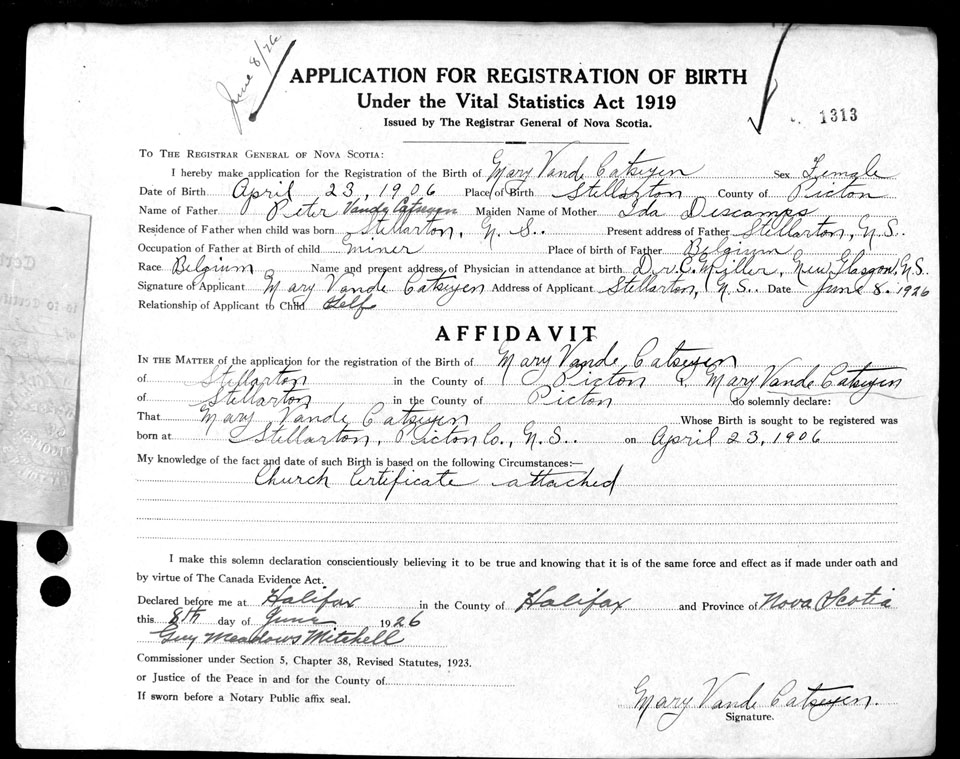 June 8/26
APPLICATION FOR REGISTRATION OF BIRTH
Under the Vital Statistics Act 1919
Issued by The Registrar General of Nova Scotia.
1313
TO THE REGISTRAR GENERAL OF NOVA SCOTIA:
I hereby make application for the Registration of the Birth of Mary Vande Catseyen Sex Female
Date of Birth April 23, 1906 Place of Birth Stellarton County of Picton
Name of Father Peter Vande Catseyen Maiden Name of Mother Ida Descamps
Residence of Father when child was born Stellarton, N. S. Present address of Father Stellarton, N. S.
Occupation of Father at Birth of child miner Place of birth of Father Belgium
Race Belgium Name and present address of Physician in attendance at birth Dr. C. Miller, New Glasgow, N. S.
Signature of Applicant Mary Vande Catseyen Address of Applicant Stellarton, N. S. Date June 8. 1926
Relationship of Applicant to Child Self
AFFIDAVIT
IN THE MATTER of the application for the registration of the Birth of Mary Vande Catseyen
of Stellarton in the County of Picton I, Mary Vande Catseyen
of Stellarton in the County of Picton do solemnly declare:
That Mary Vande Catseyen Whose Birth is sought to be registered was
born at Stellarton, Picton Co., N. S. on April 23, 1906
My knowledge of the fact and date of such Birth is based on the following Circumstances:—
Church Certificate attached
I make this solemn declaration conscientiously believing it to be true and knowing that it is of the same force and effect as if made under oath and
by virtue of The Canada Evidence Act.
Declared before me at Halifax in the County of Halifax and Province of Nova Scotia
this 8th day of June 1926
Guy Meadows Mitchell
Commissioner under Section 5, Chapter 38, Revised Statutes, 1923.
or Justice of the Peace in and for the County of
If sworn before a Notary Public affix seal.
Mary Vande Catseyen.
Signature.